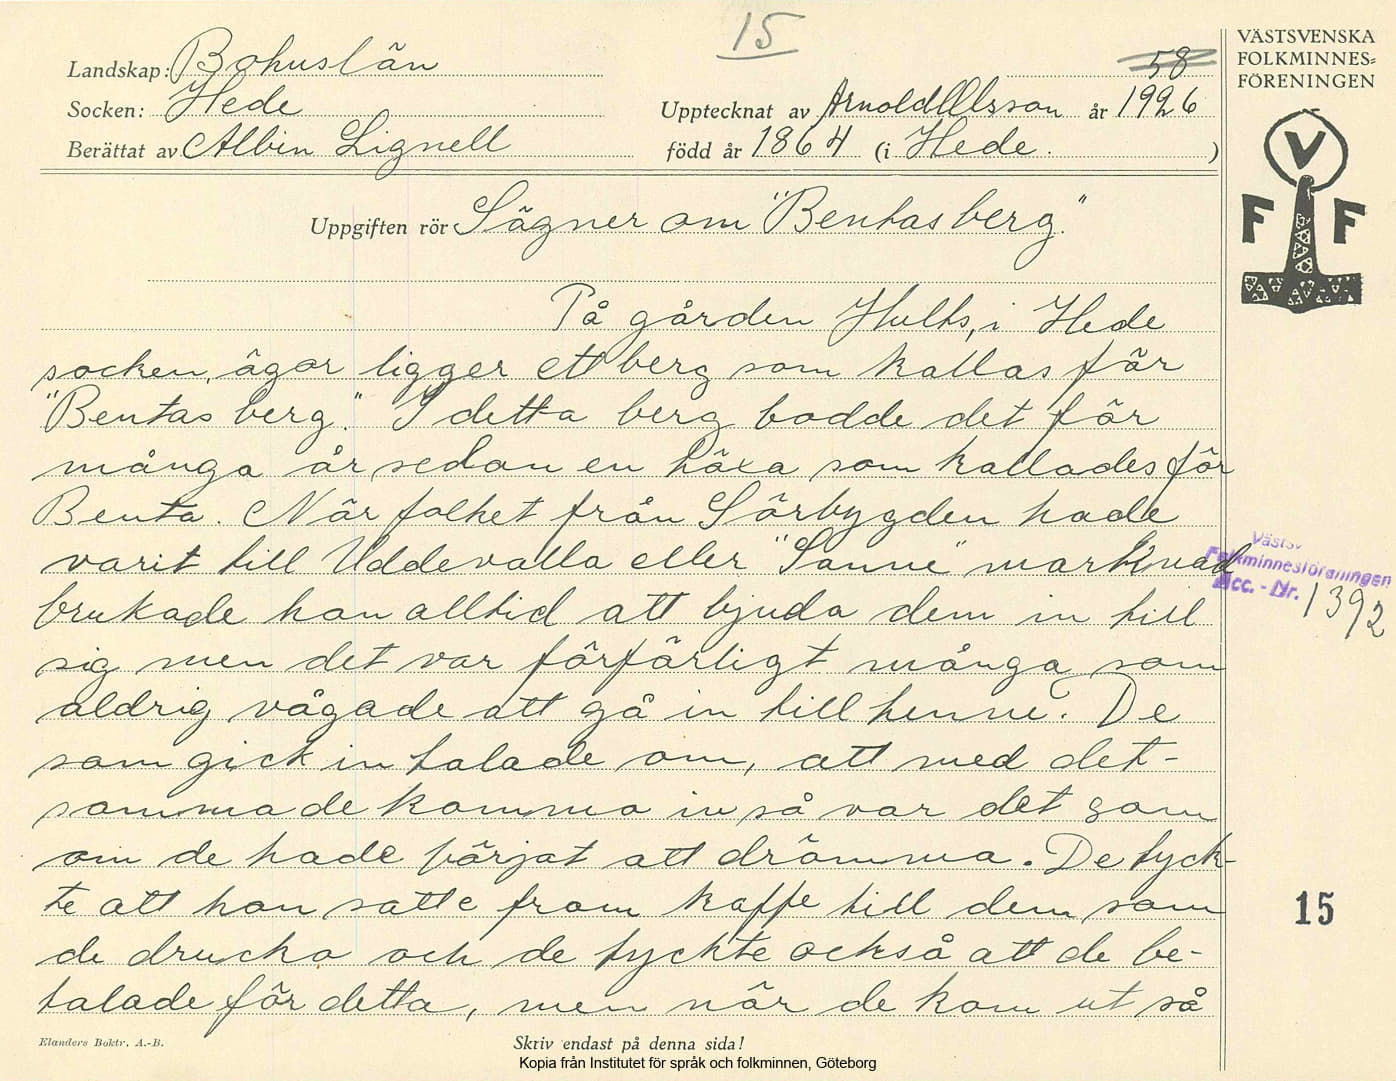 15
58
VÄSTSVENSKA
FOLKMINNES=
FÖRENINGEN
V
F F
Landskap: Bohuslän
Socken: Hede
Upptecknat av Arnold Olsson år 1926
Berättat av Albin Lignell
född år 1864 (i Hede. )
Uppgiften rör Sägner om "Bentas berg."
På gården Hults, i Hede
socken, ägor ligger ett berg som kallas för
"Bentas berg." I detta berg bodde det för
många år sedan en häxa som kallades för
Benta. När folket från Sörbygden hade
varit till Uddevalla eller "Sanne" marknad
brukade hon alltid att bjuda dem in till
sig men det var förfärligt många som
aldrig vågade att gå in till henne. De
som gick in talade om, att med det-
samma de komma in så var det som
om de hade börjat att drömma. De tyck-
te att hon satte fram kaffe till dem som
de drucko och de tyckte också att de be-
talade för detta, men när de kom ut så
Västsv
Folkminnesföreningen
Acc. - Nr. 1392
15
Elanders Boktr. A.-B.
Skriv endast på denna sida!
Kopia från Institutet för språk och folkminnen, Göteborg